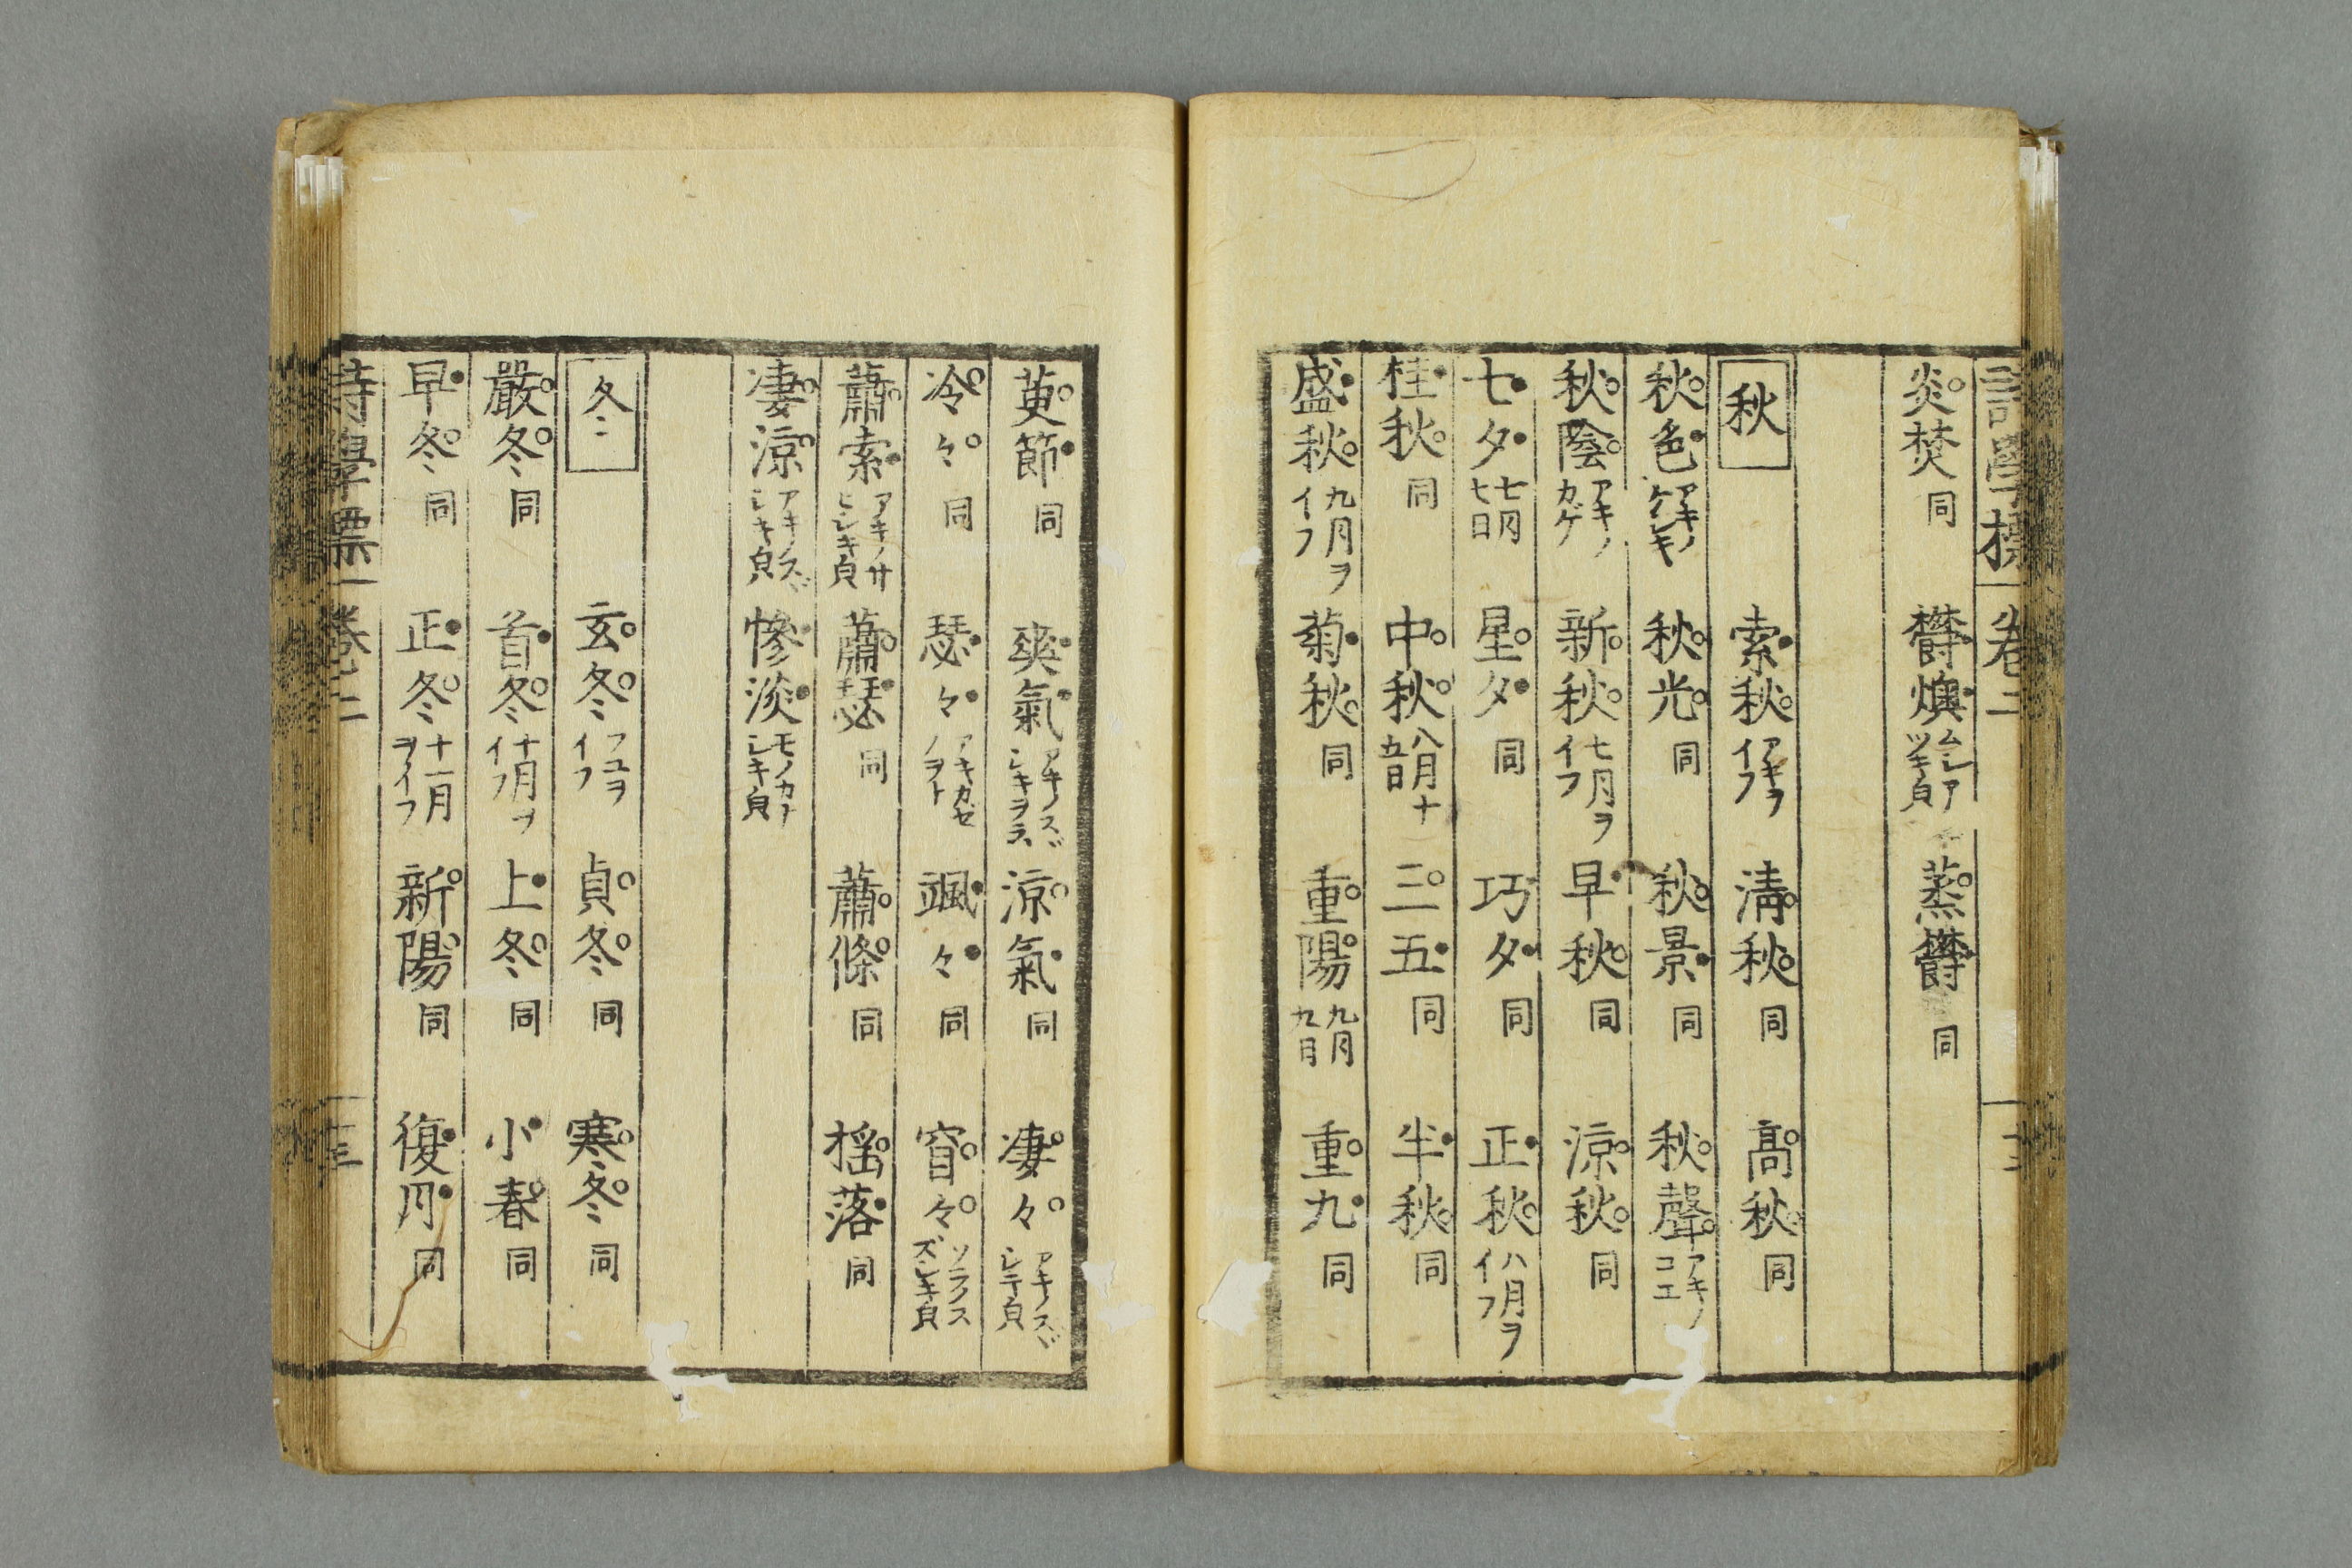 炎焚 同 欝燠 ムシアツキ皃 蒸欝 同
秋 索秋 アキヲイフ 清秋 同 高秋 同
秋色 アキノケシキ 秋光 同 秋景 同 秋聲 アキノコエ
秋陰 アキノカゲ 新秋 七月ヲイフ 早秋 同 涼秋 同
七夕 七月七日 星夕 同 巧夕 同 正秋 八月ヲイフ
桂秋 同 中秋 八月十五日 三五 同 半秋 同
盛秋 九月ヲイフ 菊秋 同 重陽 九月九日 重九 同
萸節 同 爽氣 涼氣 同 凄々
冷々 同 瑟々 アキカゼノヲト 颯々 同 窅々
蕭索 アキノサビシキ皃 蕭瑟 同 蕭條 同 揺落 同
凄涼 アキノスヾシキ皃 惨淡 モノカナシキ皃
冬 玄冬 フユヲイフ 貞冬 同 寒冬 同
嚴冬 同 首冬 十月ヲイフ 上冬 同 小春 同
早冬 同 正冬 十一月ヲイフ 新陽 同 復月 同
詩學標 卷二 十三